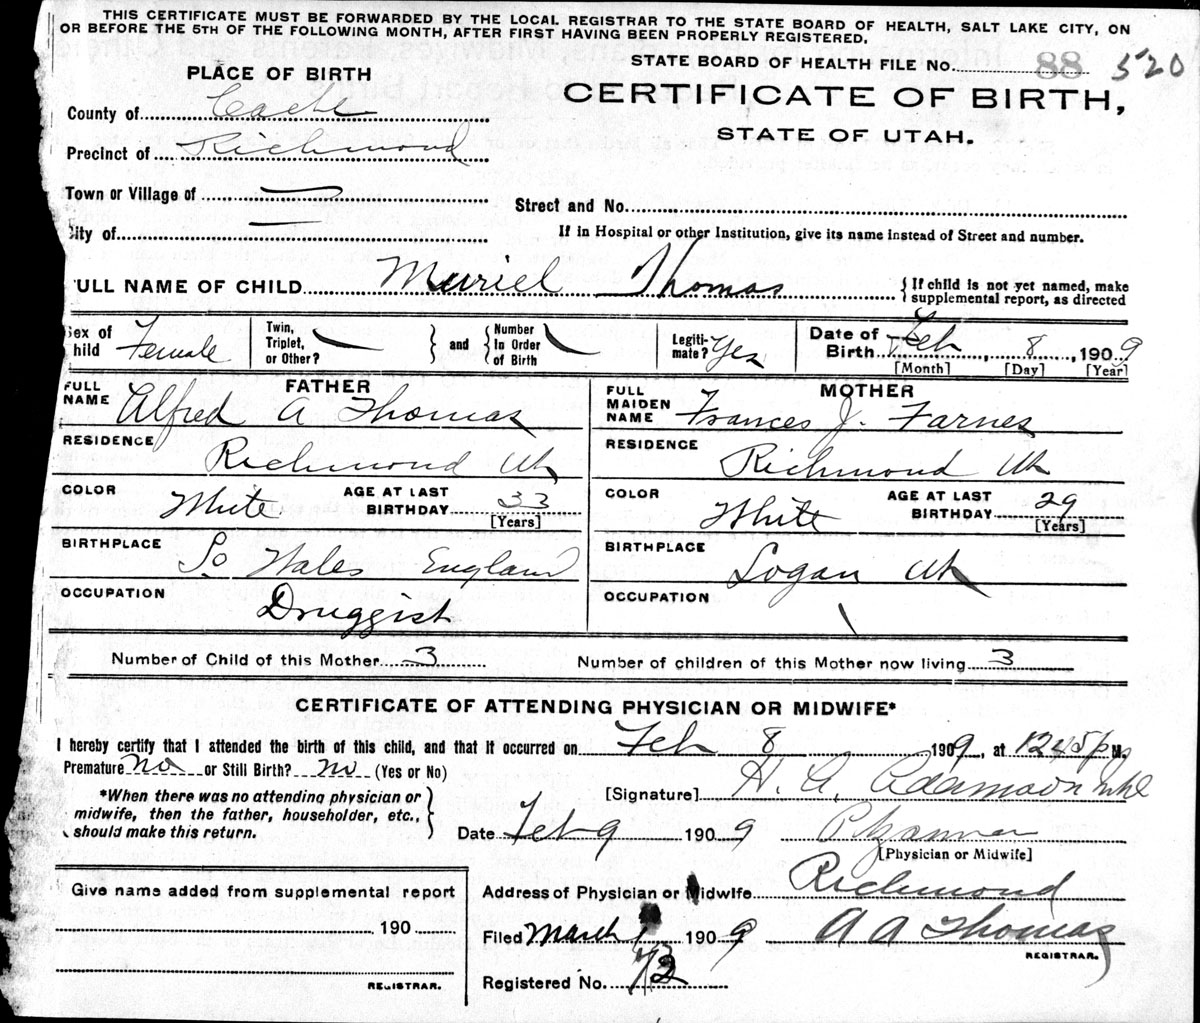 THIS CERTIFICATE MUST BE FORWARDED BY THE LOCAL REGISTRAR TO THE STATE BOARD OF HEALTH, SALT LAKE CITY, ON
OR BEFORE THE 5TH OF THE FOLLOWING MONTH, AFTER FIRST HAVING BEEN PROPERLY REGISTERED.
STATE BOARD OF HEALTH FILE No. 88 520
PLACE OF BIRTH
CERTIFICATE OF BIRTH,
STATE OF UTAH.
County of Cache
Precinct of Richmond
Town or Village of
Street and No.
City of
If in Hospital or other Institution, give its name instead of Street and number.
FULL NAME OF CHILD Muriel Thomas { If child is not yet named, make supplemental report, as directed
Sex of Child Female Twin, Triplet, or Other? } and { Number In Order of Birth Legiti-mate? Yes Date of Birth Feb 8, 1909
[Month] [Day] [Year]
FATHER MOTHER
FULL NAME Alfred A Thomas FULL MAIDEN NAME Frances J. Farnes
RESIDENCE Richmond Ut RESIDENCE Richmond Ut
COLOR White AGE AT LAST BIRTHDAY 33 [Years] COLOR White AGE AT LAST BIRTHDAY 29 [Years]
BIRTHPLACE So Wales England BIRTHPLACE Logan Ut
OCCUPATION Druggist OCCUPATION
Number of Child of this Mother 3 Number of children of this Mother now living 3
CERTIFICATE OF ATTENDING PHYSICIAN OR MIDWIFE*
I hereby certify that I attended the birth of this child, and that it occurred on Feb 8 1909, at 1245 p M.
Premature no or Still Birth? no (Yes or No)
[Signature] H. A. Adamson
*When there was no attending physician or
midwife, then the father, householder, etc.,
should make this return.
Date Feb 9 1909
[Physician or Midwife]
Give name added from supplemental report
190
REGISTRAR.
Address of Physician or Midwife Richmond
Filed March 1909 A A Thomas
REGISTRAR.
Registered No.